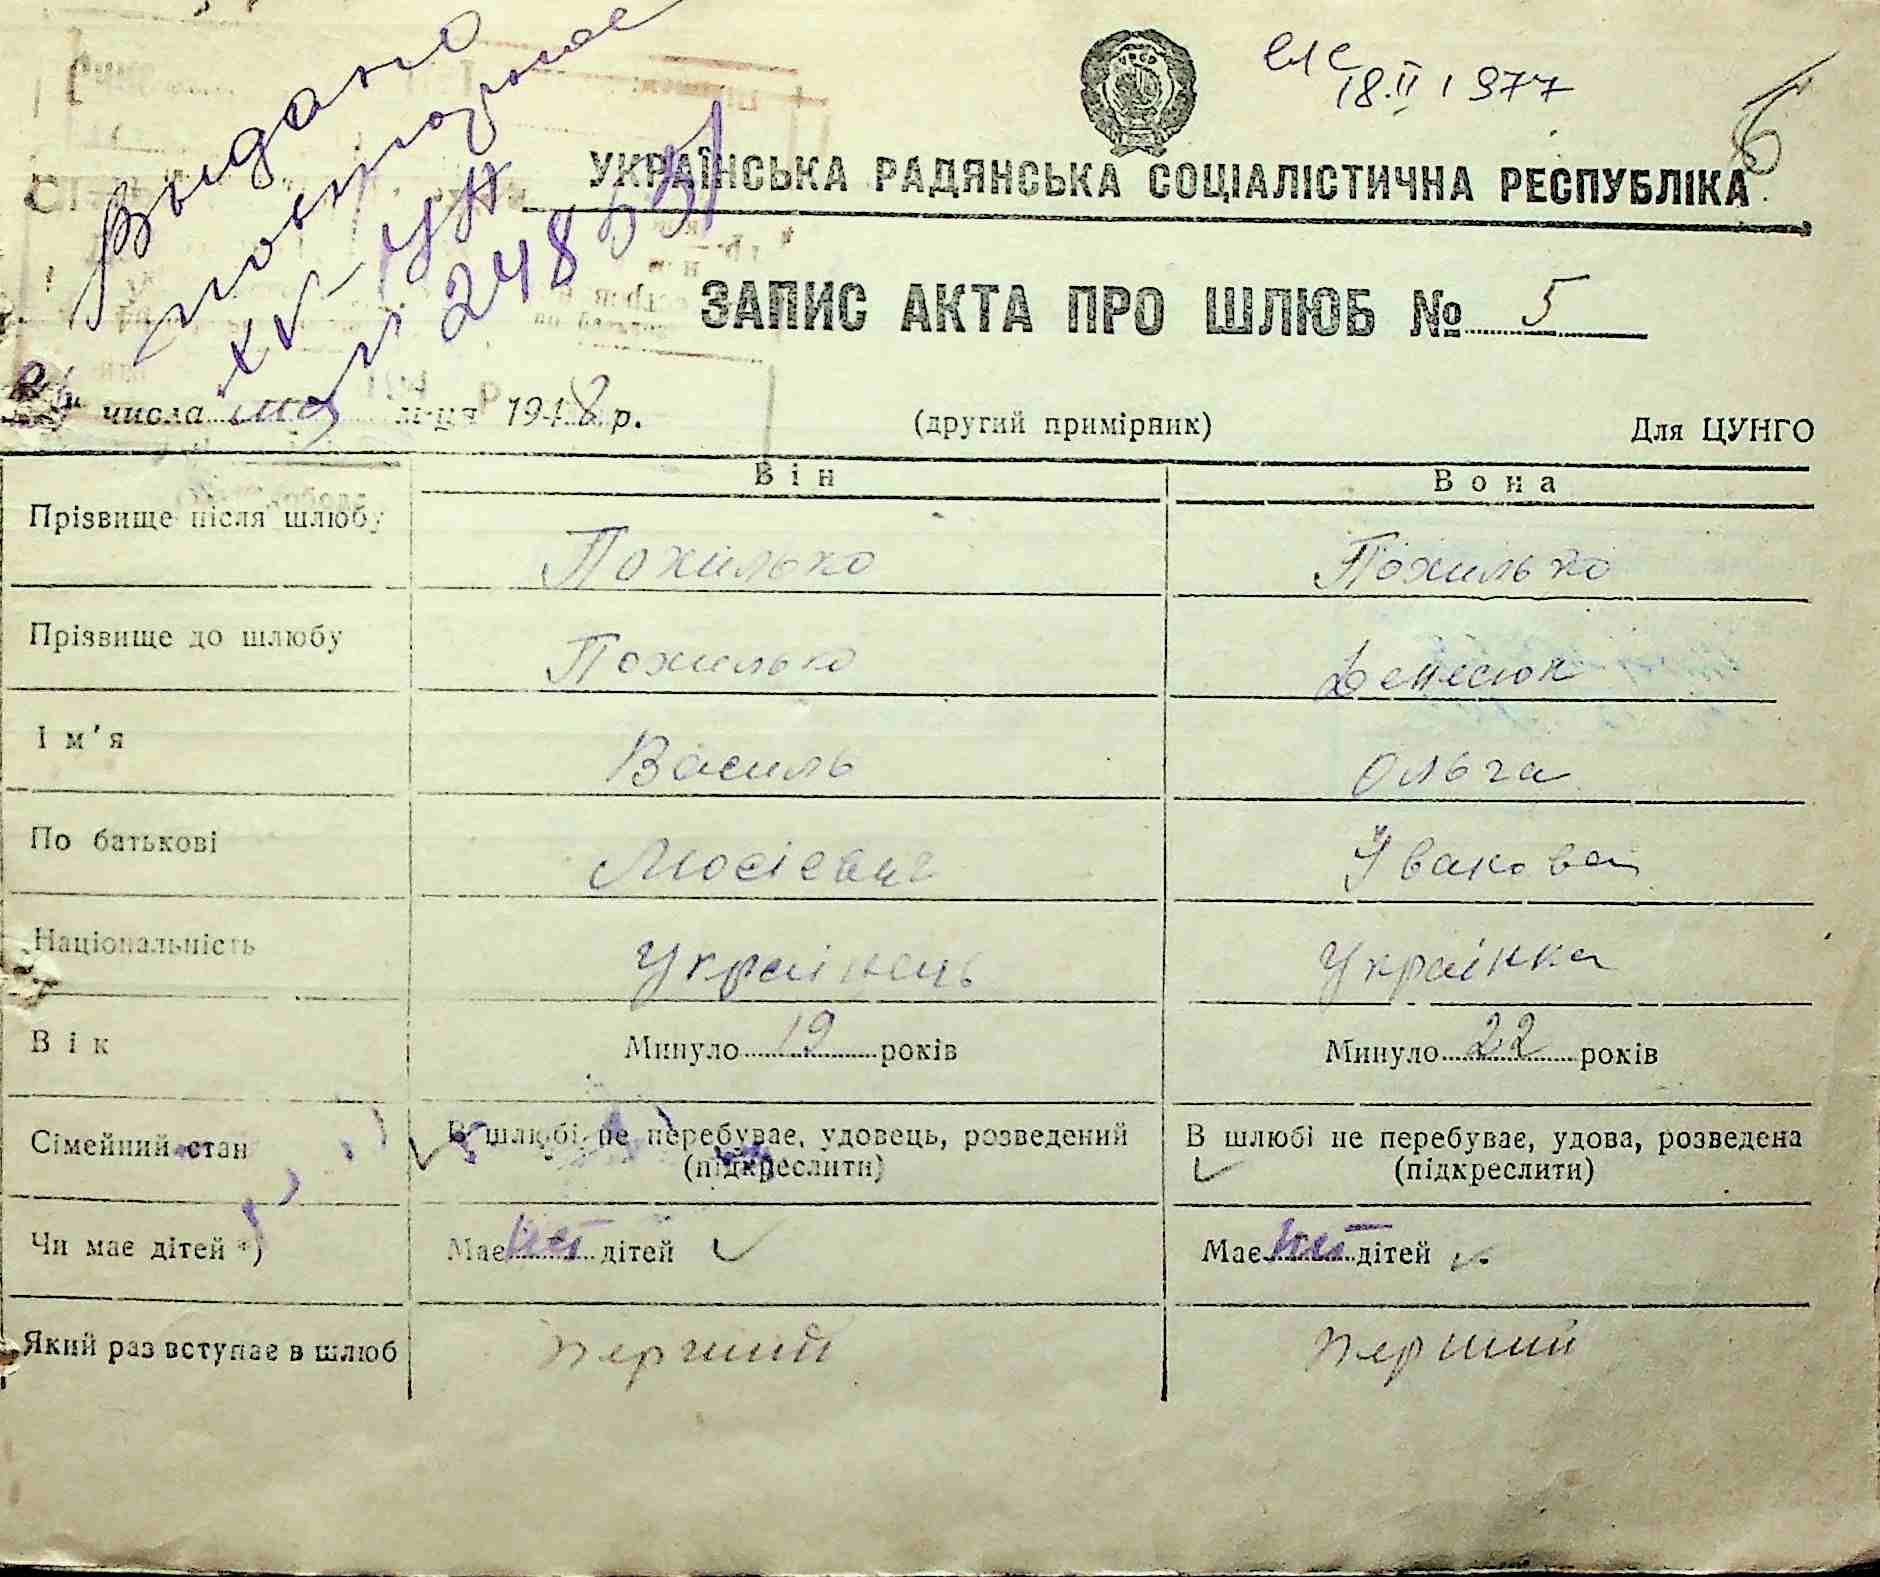 Выдано
повторное
18.II 1977
УКРАЇНСЬКА РАДЯНСЬКА СОЦІАЛІСТИЧНА РЕСПУБЛІКА
ЗАПИС АКТА ПРО ШЛЮБ № 5
числа м-ця 1948 р. (другий примірник) Для ЦУНГО
Він Вона
Прізвище після шлюбу Похилько Похилько
Прізвище до шлюбу Похилько Денесюк
Ім'я Василь Ольга
По батькові Мосієвич Івановна
Національність Українець Українка
Вік Минуло 19 років Минуло 22 років
Сімейний стан В шлюбі не перебуває, удовець, розведений В шлюбі не перебуває, удова, розведена
(підкреслити) (підкреслити)
Чи має дітей *) Має нет дітей Має нет дітей
Який раз вступає в шлюб перший перший